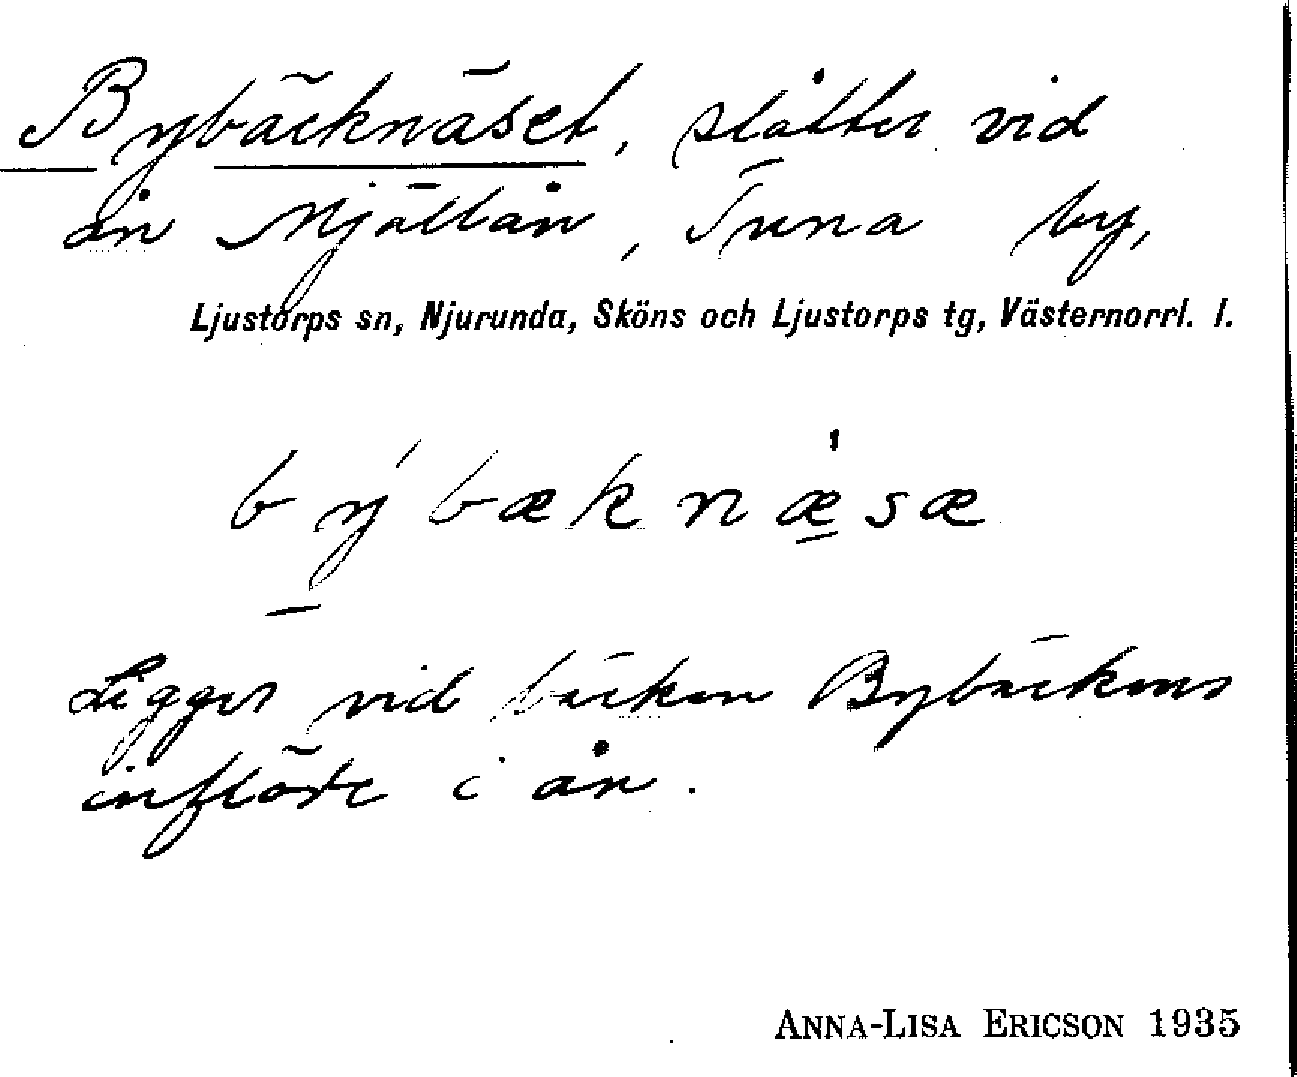 Bybäcknäset, slåtter vid
ån Mjällån, Tuna by,
Ljustorps sn, Njurunda, Sköns och Ljustorps tg, Västernorrl. l.
býbæknæ̀sæ
Ligger vid bäcken Bybäckens
inflöde i ån.
ANNA-LISA ERICSON 1935